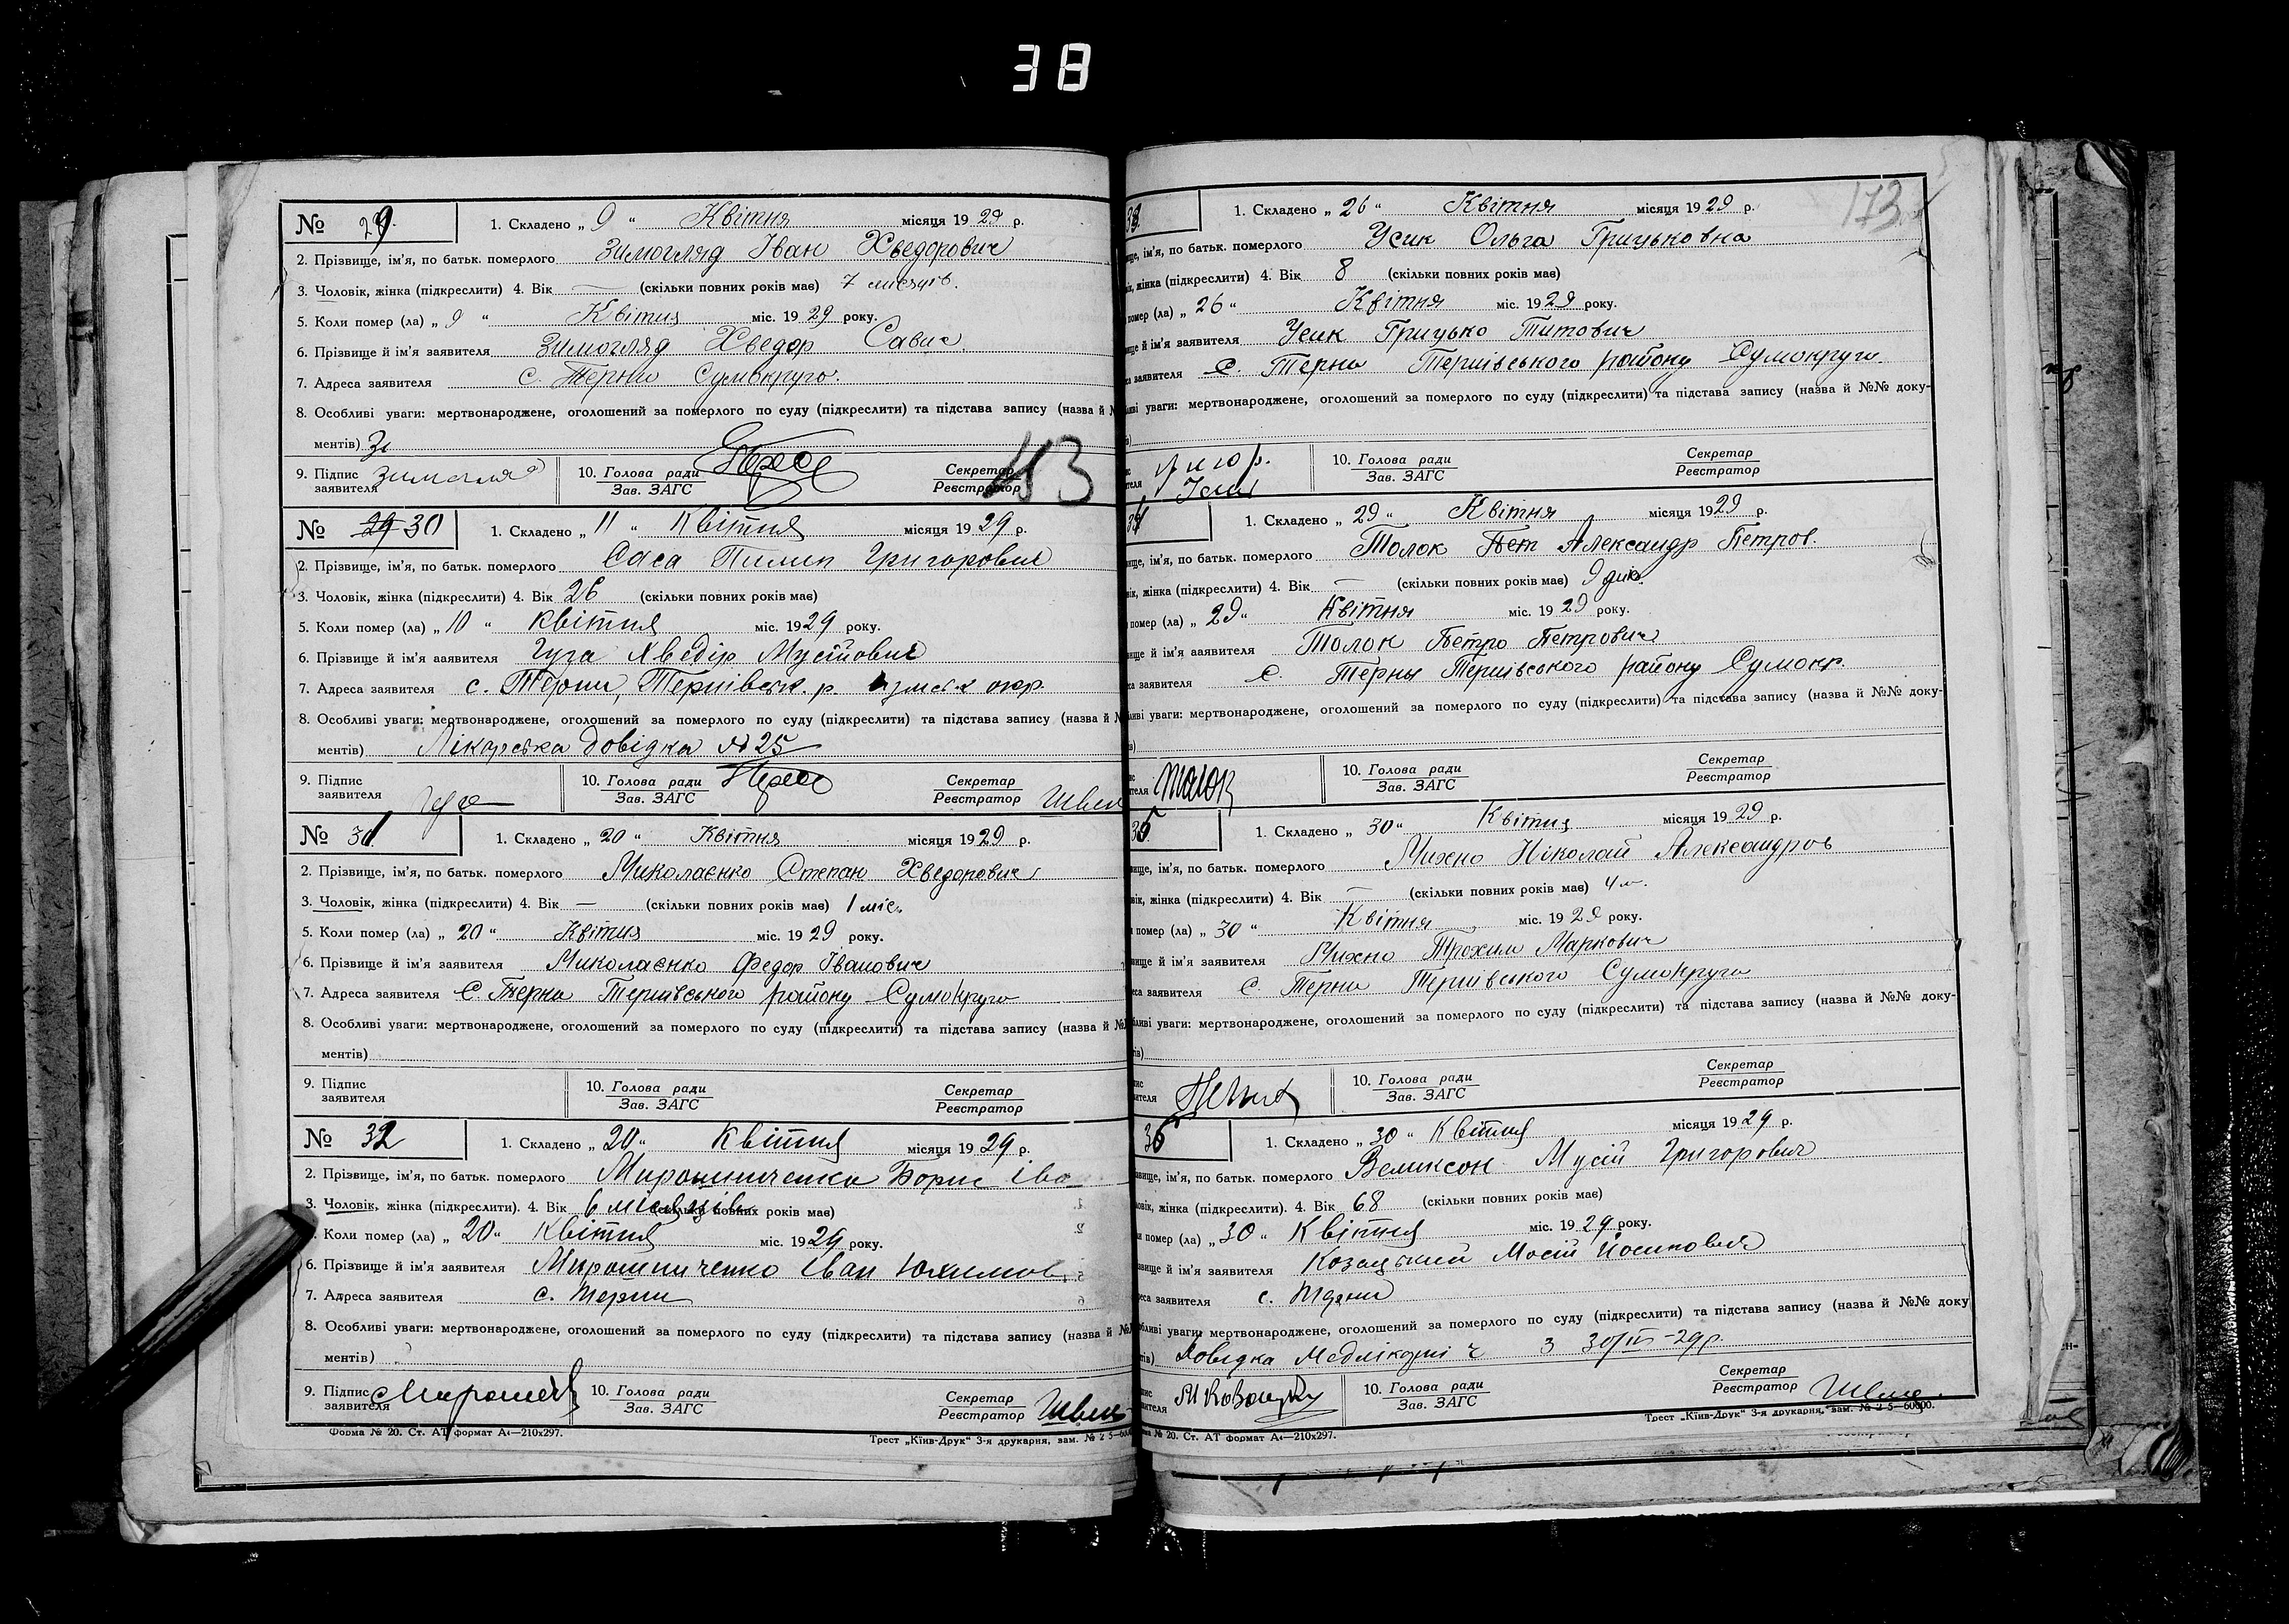 38
№ 29. 1. Складено „ 9 “ Квітня місяця 1929 р.
2. Прізвище, ім'я, по батьк. померлого Зимогляд Іван Хведорович
3. Чоловік, жінка (підкреслити) 4. Вік — (скільки повних років має) 7 місяців.
5. Коли помер (ла) „ 9 “ Квітня міс. 1929 року.
6. Прізвище й ім'я заявителя Зимогляд Хведор Савич
7. Адреса заявителя с. Терни Сумокруги.
8. Особливі уваги: мертвонароджене, оголошений за померлого по суду (підкреслити) та підстава запису (назва й №
ментів)
9. Підпис заявителя 10. Голова ради Зав. ЗАГС Секретар Реєстратор
№ 29 30 1. Складено „ 11 “ Квітня місяця 1929 р.
2. Прізвище, ім'я, по батьк. померлого Саса Пилип Григорович
3. Чоловік, жінка (підкреслити) 4. Вік 26 (скільки повних років має)
5. Коли помер (ла) „ 10 “ квітня міс. 1929 року.
6. Прізвище й ім'я заявителя Гуга Хведір Мусійович
7. Адреса заявителя с. Терни, Тернівськ. р. окр.
8. Особливі уваги: мертвонароджене, оголошений за померлого по суду (підкреслити) та підстава запису (назва й №
ментів) Лікарська довідка № 25
9. Підпис заявителя 10. Голова ради Зав. ЗАГС Секретар Реєстратор
№ 31 1. Складено „ 20 “ Квітня місяця 1929 р.
2. Прізвище, ім'я, по батьк. померлого Миколаєнко Степан Хведорович
3. Чоловік, жінка (підкреслити) 4. Вік — (скільки повних років має) 1 міс.
5. Коли помер (ла) „ 20 “ Квітня міс. 1929 року.
6. Прізвище й ім'я заявителя Миколаєнко Федор Іванович
7. Адреса заявителя С. Терни Тернівського району Сумокруги
8. Особливі уваги: мертвонароджене, оголошений за померлого по суду (підкреслити) та підстава запису (назва й №
ментів)
9. Підпис заявителя 10. Голова ради Зав. ЗАГС Секретар Реєстратор
№ 32 1. Складено „ 20 “ Квітня місяця 1929 р.
2. Прізвище, ім'я, по батьк. померлого Мирошниченко Борис Іва
3. Чоловік, жінка (підкреслити). 4. Вік 6 місяців (скільки повних років має)
Коли помер (ла) „ 20 “ Квітня міс. 1929 року.
6. Прізвище й ім'я заявителя Мирошниченко Іван Юхимов
7. Адреса заявителя с. Терни
8. Особливі уваги: мертвонароджене, оголошений за померлого по суду (підкреслити) та підстава запису (назва й №
ментів)
9. Підпис заявителя 10. Голова ради Зав. ЗАГС Секретар Реєстратор
Форма № 20. Ст. АТ формат А₄—210х297. Трест „Київ-Друк“ 3-я друкарня, зам. №
173
33. 1. Складено „ 26 “ Квітня місяця 1929 р.
ище, ім'я, по батьк. померлого Усик Ольга Грицьковна
жінка (підкреслити) 4. Вік 8 (скільки повних років має)
помер (ла) „ 26 “ Квітня міс. 1929 року.
ище й ім'я заявителя Усик Грицько Титович
заявителя С. Терни Тернівського району Сумокруги
уваги: мертвонароджене, оголошений за померлого по суду (підкреслити) та підстава запису (назва й №№ доку-
10. Голова ради Зав. ЗАГС Секретар Реєстратор
34 1. Складено „ 29 “ Квітня місяця 1929 р.
ище, ім'я, по батьк. померлого Толок Пет Александр Петров.
жінка (підкреслити) 4. Вік — (скільки повних років має) 9 дн.
помер (ла) „ 29 “ Квітня міс. 1929 року.
ище й ім'я заявителя Толок Петро Петрович
заявителя С. Терни Тернівського району Сумокр.
уваги: мертвонароджене, оголошений за померлого по суду (підкреслити) та підстава запису (назва й №№ доку-
Толок 10. Голова ради Зав. ЗАГС Секретар Реєстратор
35. 1. Складено „ 30 “ Квітня місяця 1929 р.
ище, ім'я, по батьк. померлого Михно Ніколай Александров
жінка (підкреслити) 4. Вік — (скільки повних років має) 4 м.
помер (ла) „ 30 “ Квітня міс. 1929 року.
ище й ім'я заявителя Михно Трохим Маркович
заявителя С. Терни Тернівського Сумокруги
уваги: мертвонароджене, оголошений за померлого по суду (підкреслити) та підстава запису (назва й №№ доку-
10. Голова ради Зав. ЗАГС Секретар Реєстратор
36 1. Складено „ 30 “ Квітня місяця 1929 р.
ище, ім'я, по батьк. померлого Великсон Мусій Григорович
жінка (підкреслити). 4. Вік 68 (скільки повних років має)
помер (ла) „ 30 “ Квітня міс. 1929 року.
ище й ім'я заявителя Козацький Мосій Йосипович
заявителя с. Терни
уваги: мертвонароджене, оголошений за померлого по суду (підкреслити) та підстава запису (назва й №№ доку
Довідка з 30/IV-29р.
10. Голова ради Зав. ЗАГС Секретар Реєстратор
№ 20. Ст. АТ формат А₄—210х297. Трест „Київ-Друк“ 3-я друкарня, зам. №